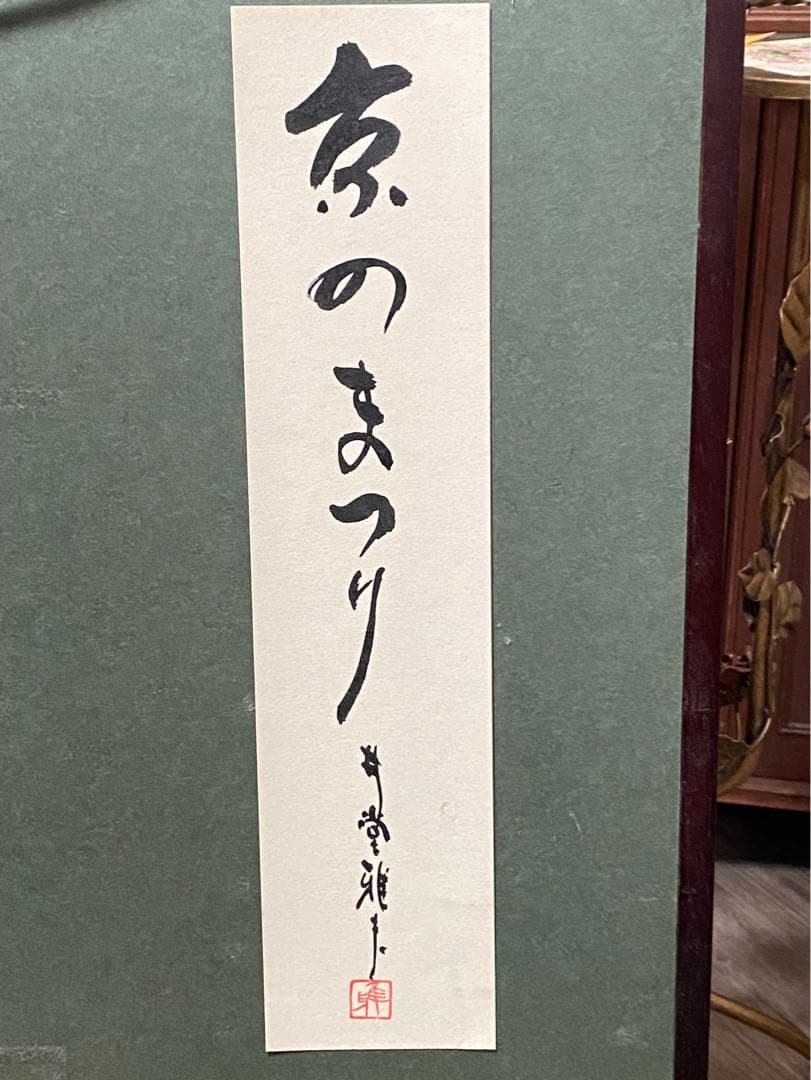 京のまつり
井堂雅夫